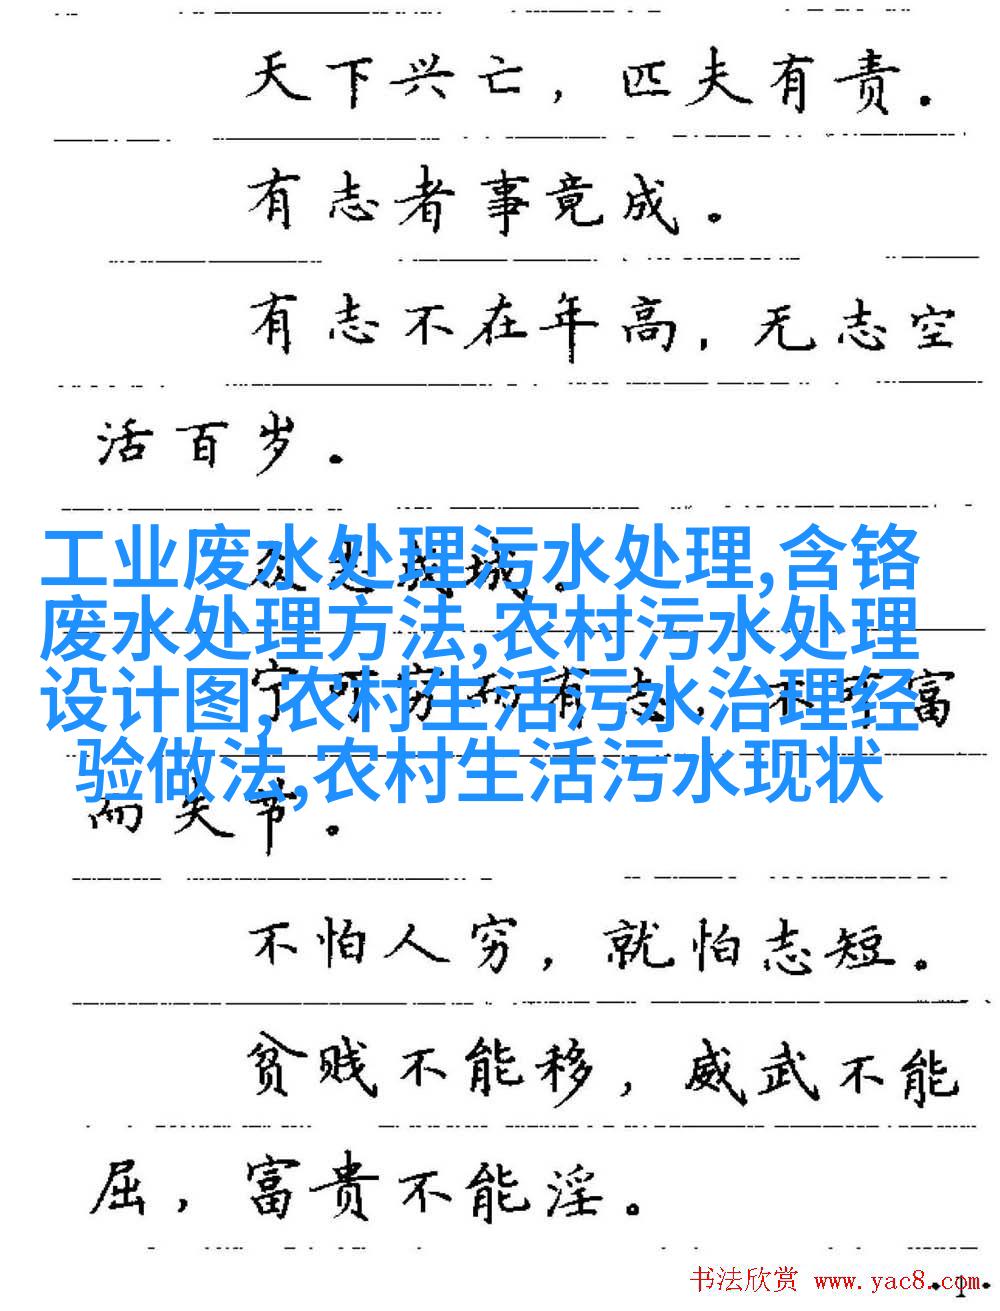 天下兴亡，匹夫有责.
有志者事竟成。
有志不在年高，无志空
活百岁.
众志成城。
工业废水处理污水处理,含铬
废水处理方法,农村污水处理
设计图,农村生活污水治理经
验做法,农村生活污水现状
宁可穷而有志，不可富
而失节。
不怕人穷，就怕志短。
贫贱不能移，威武不能
屈，富贵不能淫。
书法欣赏 www.yac8.com
·1·